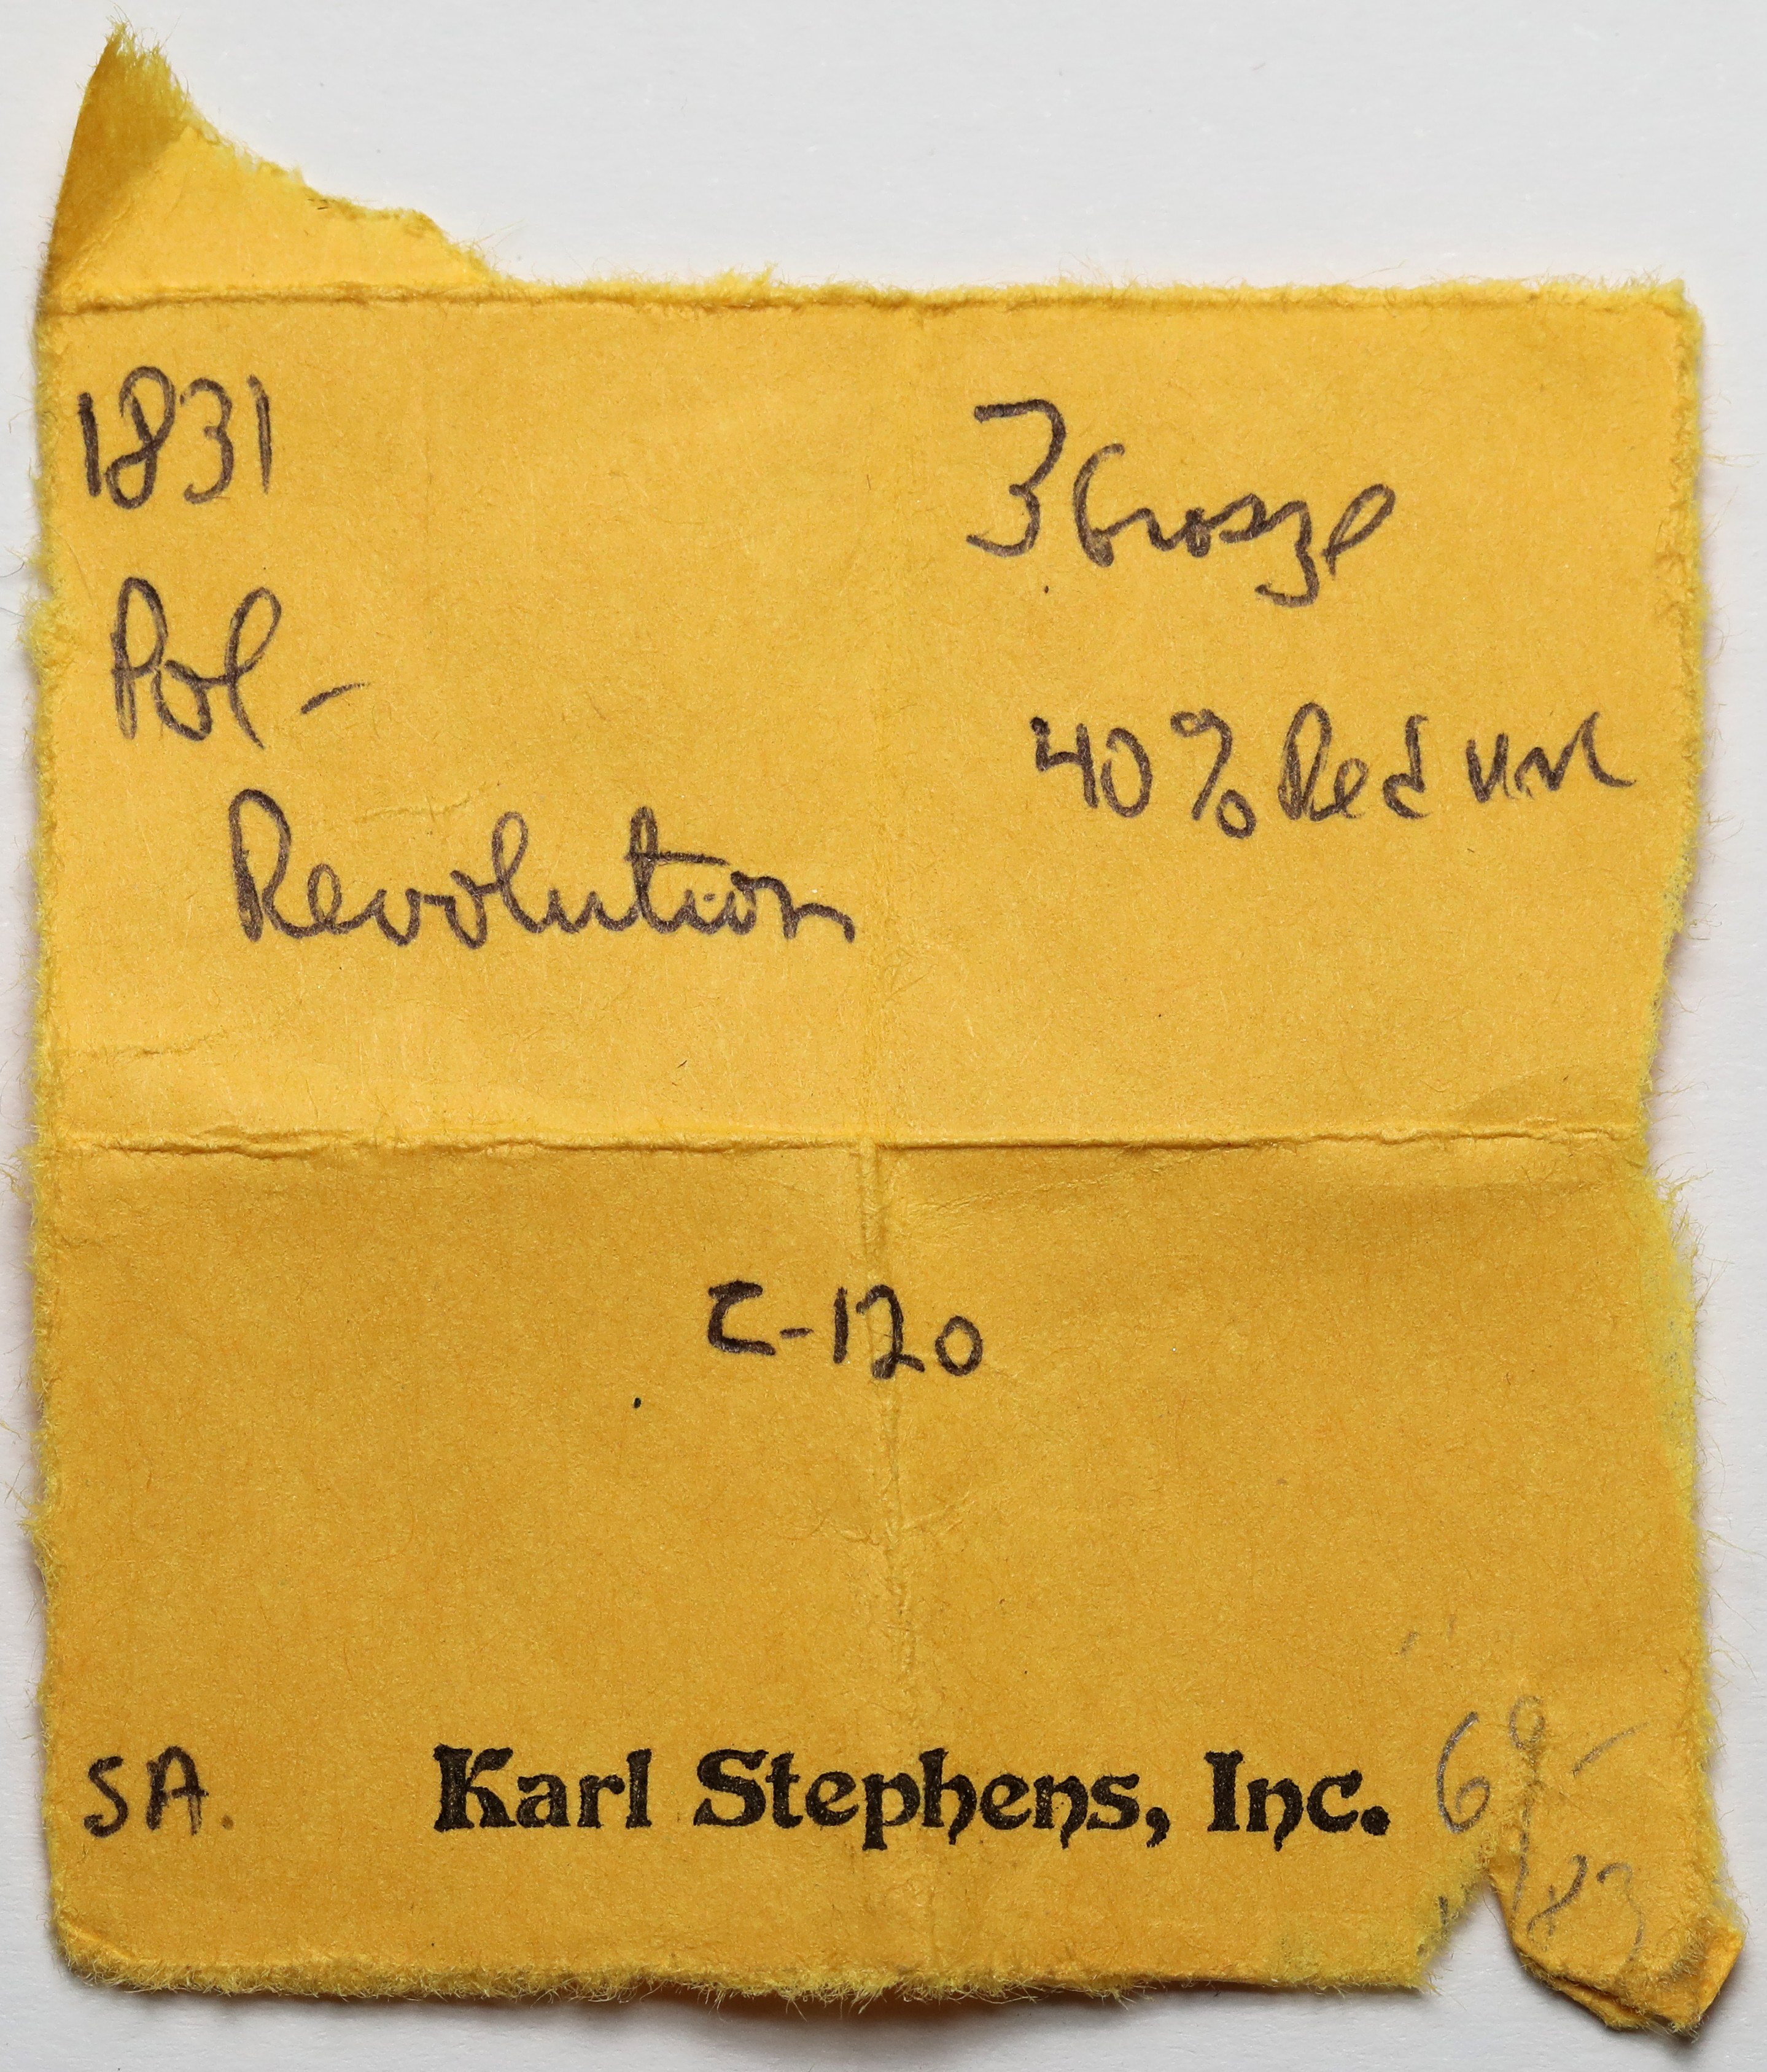 1831
3 Grosze
Pol-
40% Red unc
Revolution
C-120
SA. Karl Stephens, Inc. 69-
83